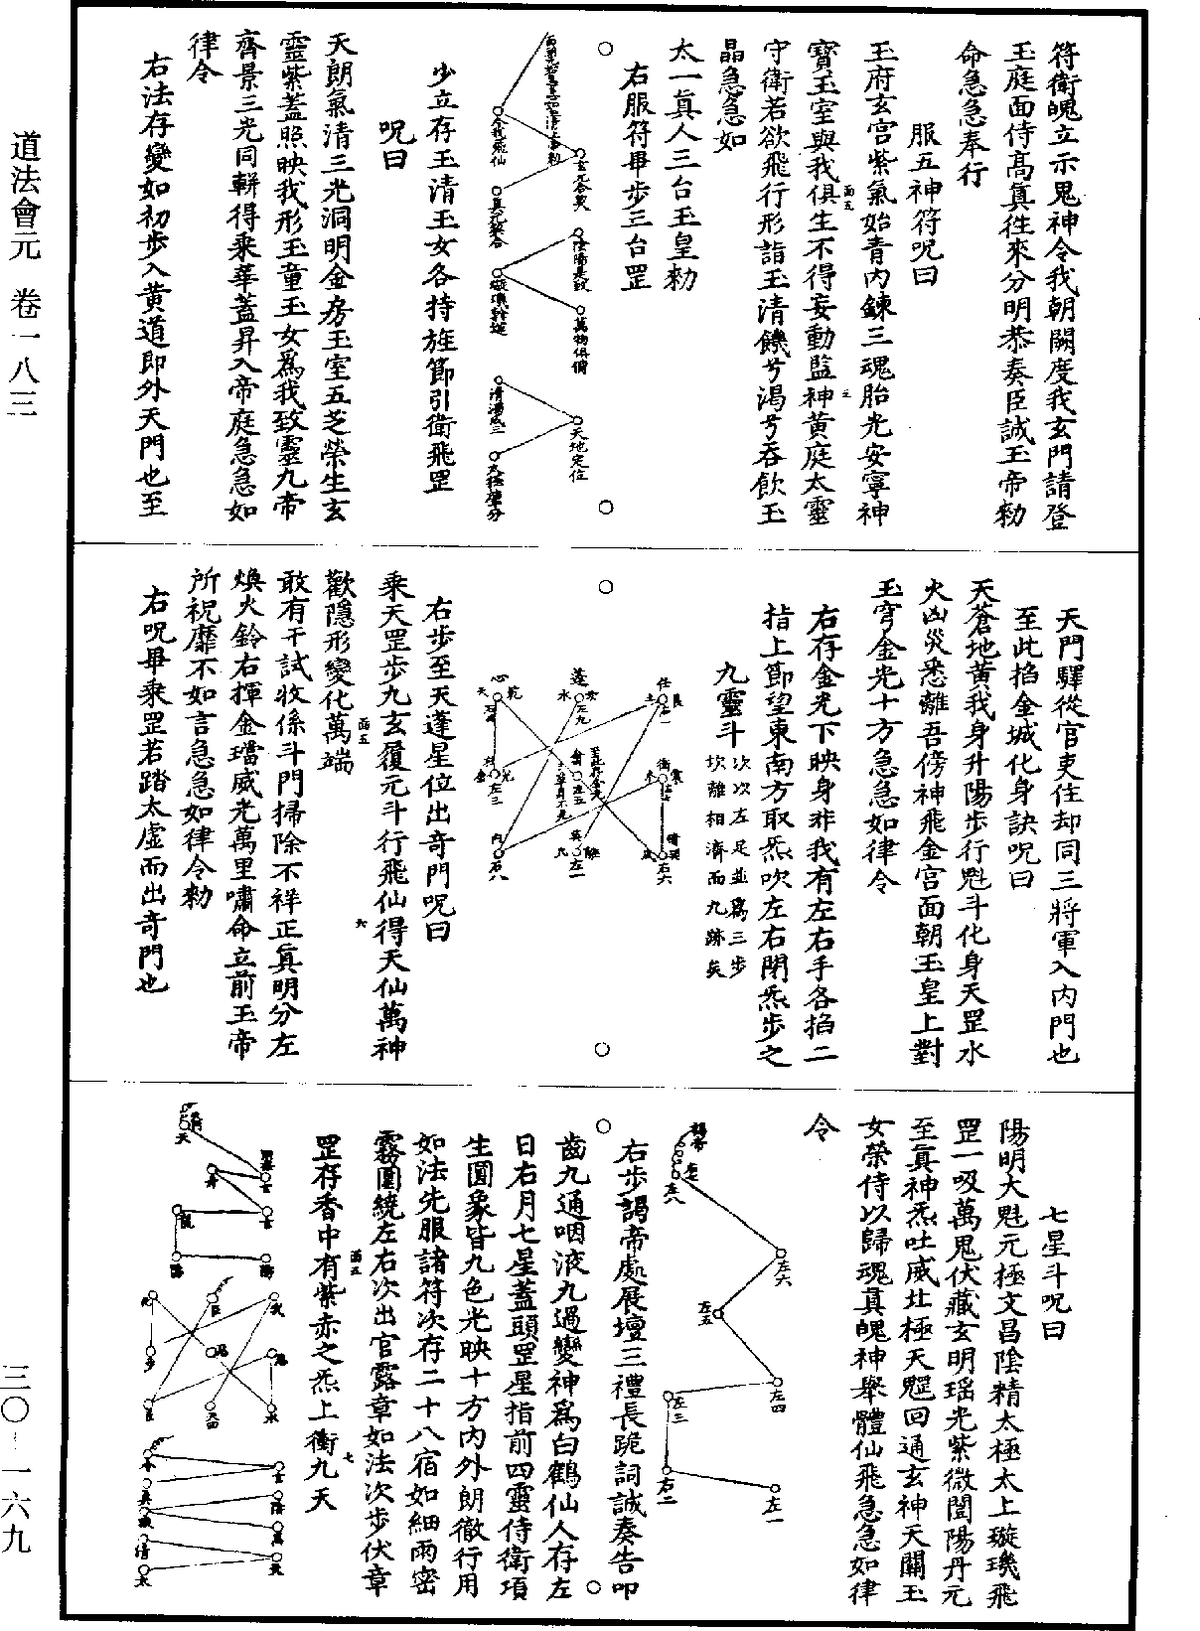 道法會元　卷一八三
符衛魄立示鬼神令我朝闕度我玄門請登
玉庭面侍高真往來分明恭奏臣誠玉帝勑
命急急奉行
服五神符呪曰
玉府玄宮紫氣始青內鍊三魂胎光安寧神
寶玉室與我俱生不得妄動監神黃庭太靈
守衛若欲飛行形詣玉清饑兮渴兮吞飲玉
晶急急如
太一真人三台玉皇勑
右服符畢步三台罡
玄元合炁
陰陽是致
萬物俱備
天地定位
真元契合
璇璣幹運
清濁成三
太極肇分
少立存玉清玉女各持旌節引衛飛罡
呪曰
天朗氣清三光洞明金房玉室五芝榮生玄
靈紫蓋照映我形玉童玉女為我致靈九帝
齊景三光同軿得乘華蓋昇入帝庭急急如
律令
右法存變如初步入黃道即外天門也至
天門驛從官吏住却同三將軍入內門也
至此掐金城化身訣呪曰
天蒼地黃我身升陽步行魁斗化身天罡水
火凶災悉離吾傍神飛金宮面朝玉皇上對
玉穹金光十方急急如律令
右存金光下映身非我有左右手各掐二
指上節望東南方取炁吹左右閉炁步之
九靈斗
次次左足並為三步
坎離相濟而九跡矣
右步至天蓬星位出奇門呪曰
乘天罡步九玄履元斗行飛仙得天仙萬神
歡隱形變化萬端
敢有干試收係斗門掃除不祥正真明分左
煥火鈴右揮金璫威光萬里嘯命立前玉帝
所祝靡不如言急急如律令勑
右呪畢乘罡若踏太虛而出奇門也
七星斗呪曰
陽明大魁元極文昌陰精太極太上璇璣飛
罡一吸萬鬼伏藏玄明瑤光紫微闓陽丹元
至真神炁吐威壯極天魒回通玄神天關玉
女榮侍以歸魂真魄神舉體仙飛急急如律
令
左八
左六
左五
左四
左三
右二
左一
右步謁帝處展壇三禮長跪詞誠奏告叩
齒九通咽液九過變神為白鶴仙人存左
日右月七星蓋頭罡星指前四靈侍衛項
生圓象皆九色光映十方內外朗徹行用
如法先服諸符次存二十八宿如細雨密
霧圍繞左右次出官露章如法次步伏章
罡存香中有紫赤之炁上衝九天
三〇－一六九